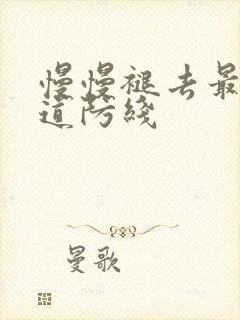 慢慢褪去最
道防线
曼歌